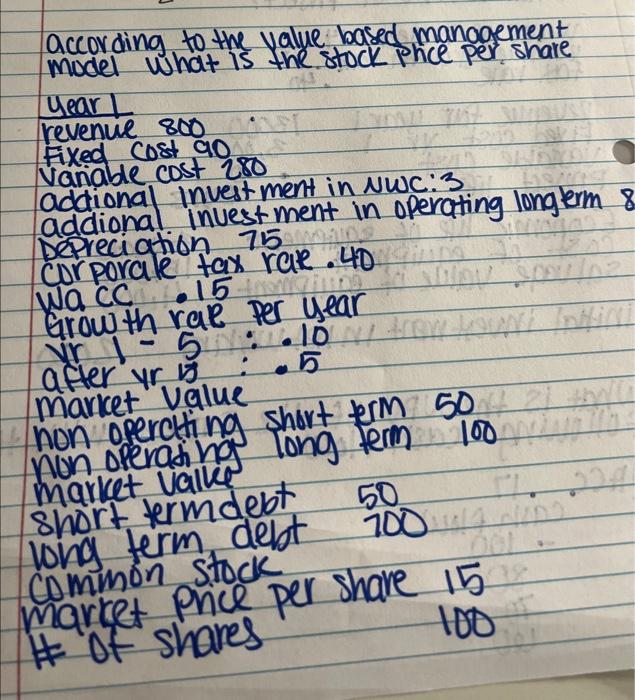 according to the value based management
model what is the stock price per share
Year 1
revenue 800
Fixed cost 90
Variable cost 280
addional investment in NWC: 3
addional investment in operating longterm 8
Depreciation 75
Corporate tax rate .40
wacc .15
Growth rate per year
yr 1 - 5 : .10
after yr 5 : .5
market value
non operating short term 50
non operating long term 100
market value
short term debt 50
long term debt 700
common stock
market price per share 15
# of shares 100